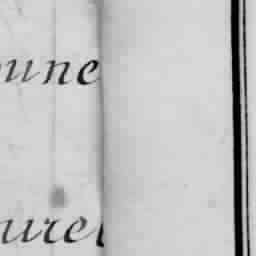 une
ure